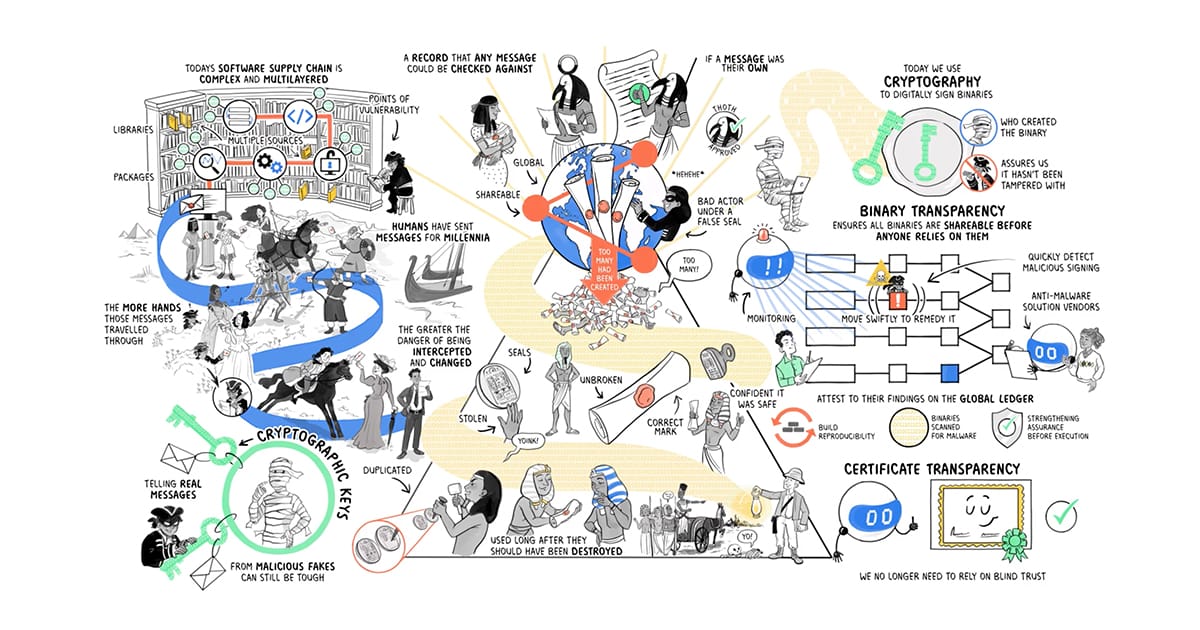 TODAYS SOFTWARE SUPPLY CHAIN IS
COMPLEX AND MULTILAYERED
POINTS OF
VULNERABILITY
LIBRARIES
MULTIPLE SOURCES
PACKAGES
HUMANS HAVE SENT
MESSAGES FOR MILLENNIA
THE MORE HANDS
THOSE MESSAGES
TRAVELLED
THROUGH
THE GREATER THE
DANGER OF BEING
INTERCEPTED
AND CHANGED
CRYPTOGRAPHIC KEYS
TELLING REAL
MESSAGES
FROM MALICIOUS FAKES
CAN STILL BE TOUGH
A RECORD THAT ANY MESSAGE
COULD BE CHECKED AGAINST
IF A MESSAGE WAS
THEIR OWN
THOTH
APPROVED
GLOBAL
SHAREABLE
*HEHEHE*
BAD ACTOR
UNDER A
FALSE SEAL
TOO
MANY HAD
BEEN
CREATED
TOO
MANY!
SEALS
UNBROKEN
STOLEN
YOINK!
CORRECT
MARK
CONFIDENT IT
WAS SAFE
DUPLICATED
USED LONG AFTER THEY
SHOULD HAVE BEEN DESTROYED
YO!
TODAY WE USE
CRYPTOGRAPHY
TO DIGITALLY SIGN BINARIES
WHO CREATED
THE BINARY
ASSURES US
IT HASN'T BEEN
TAMPERED WITH
BINARY TRANSPARENCY
ENSURES ALL BINARIES ARE SHAREABLE BEFORE
ANYONE RELIES ON THEM
!!
QUICKLY DETECT
MALICIOUS SIGNING
!
MONITORING
MOVE SWIFTLY TO REMEDY IT
ANTI-MALWARE
SOLUTION VENDORS
ATTEST TO THEIR FINDINGS ON THE GLOBAL LEDGER
BUILD
REPRODUCIBILITY
BINARIES
SCANNED
FOR MALWARE
STRENGTHENING
ASSURANCE
BEFORE EXECUTION
CERTIFICATE TRANSPARENCY
WE NO LONGER NEED TO RELY ON BLIND TRUST